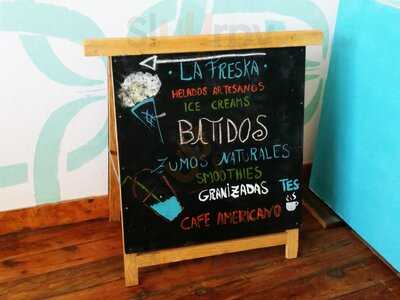 · LA FRESKA ·
HELADOS ARTESANOS
ICE CREAMS
BATIDOS
ZUMOS NATURALES
SMOOTHIES
GRANIZADAS TES
CAFE AMERICANO